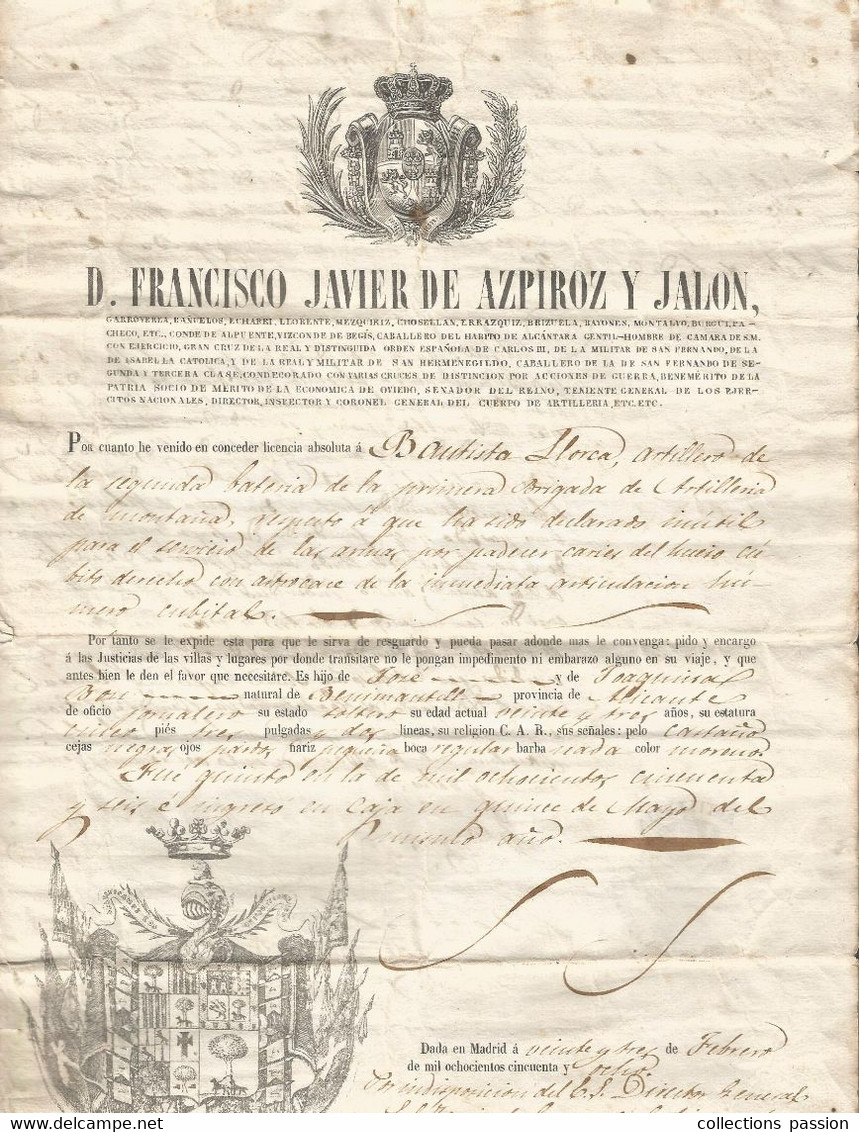 D. FRANCISCO JAVIER DE AZPIROZ Y JALON,
GARROVEREA, BAÑUELOS, ECHARRI, LLORENTE, MEZQUIRIZ, CHOSELLAN, ERRAZQUIZ, BRIZUELA, BAYONES, MONTALVO, BURGUI, PA-
CHECO, ETC., CONDE DE ALPUENTE, VIZCONDE DE BEGÍS, CABALLERO DEL HABITO DE ALCÁNTARA GENTIL-HOMBRE DE CAMARA DE S.M.
CON EJERCICIO, GRAN CRUZ DE LA REAL Y DISTINGUIDA ORDEN ESPAÑOLA DE CARLOS III, DE LA MILITAR DE SAN FERNANDO, DE LA
DE ISABEL LA CATOLICA, Y DE LA REAL Y MILITAR DE SAN HERMENEGILDO, CABALLERO DE LA DE SAN FERNANDO DE SE-
GUNDA Y TERCERA CLASE, CONDECORADO CON VARIAS CRUCES DE DISTINCION POR ACCIONES DE GUERRA, BENEMÉRITO DE LA
PATRIA SOCIO DE MÉRITO DE LA ECONOMICA DE OVIEDO, SENADOR DEL REINO, TENIENTE GENERAL DE LOS EJER-
CITOS NACIONALES, DIRECTOR, INSPECTOR Y CORONEL GENERAL DEL CUERPO DE ARTILLERIA, ETC. ETC.
POR cuanto he venido en conceder licencia absoluta á Bautista Llorca, artillero de
la segunda bateria de la primera Brigada de Artilleria
de montaña, respecto á que ha sido declarado inútil
para el servicio de las armas por padecer caries del hueso cú-
bito derecho con artrocace de la inmediata articulacion hú-
mero cubital.
Por tanto se le expide esta para que le sirva de resguardo y pueda pasar adonde mas le convenga: pido y encargo
á las Justicias de las villas y lugares por donde transitare no le pongan impedimento ni embarazo alguno en su viaje, y que
antes bien le den el favor que necesitare. Es hijo de José y de Joaquina
natural de Benimantell provincia de Alicante
de oficio jornalero su estado soltero su edad actual veinte y tres años, su estatura
cinco piés tres pulgadas y dos lineas, su religion C. A. R., sus señales: pelo castaño
cejas negras ojos pardos nariz pequeña boca regular barba nada color moreno.
Fué quinto en la de mil ochocientos cincuenta
y seis é ingresó en caja en quince de Mayo del
mismo año.
Dada en Madrid á veinte y tres de Febrero
de mil ochocientos cincuenta y ocho.
Por indisposicion del E.S. Director General
collections passion